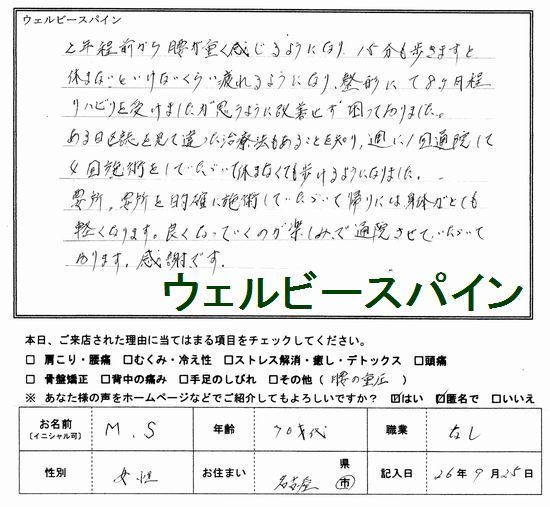 ウェルビースパイン
2年程前から腰が重く感じるようになり 15分も歩きますと
休まないといけないくらい疲れるようになり、整形にて8ヶ月程
リハビリを受けましたが思うように改善せず困っておりました。
ある日雑誌を見て違った治療法もあることを知り、週に1回通院して
4回施術をしていただいて休まなくても歩けるようになりました。
要所、要所を的確に施術していただいて帰りには身体がとても
軽くなります。良くなっていくのが楽しみで通院させていただいて
おります。感謝です。
ウェルビースパイン
本日、ご来店された理由に当てはまる項目をチェックしてください。
□ 肩こり・腰痛 □むくみ・冷え性 □ストレス解消・癒し・デトックス □頭痛
□ 骨盤矯正 □背中の痛み □手足のしびれ □その他（腰の重圧）
※ あなた様の声をホームページなどでご紹介してもよろしいですか？ ☑はい ☑匿名で □いいえ
お名前 [イニシャル可] M.S 年齢 70才代 職業 なし
性別 女性 お住まい 名古屋 県 市 記入日 26年9月25日